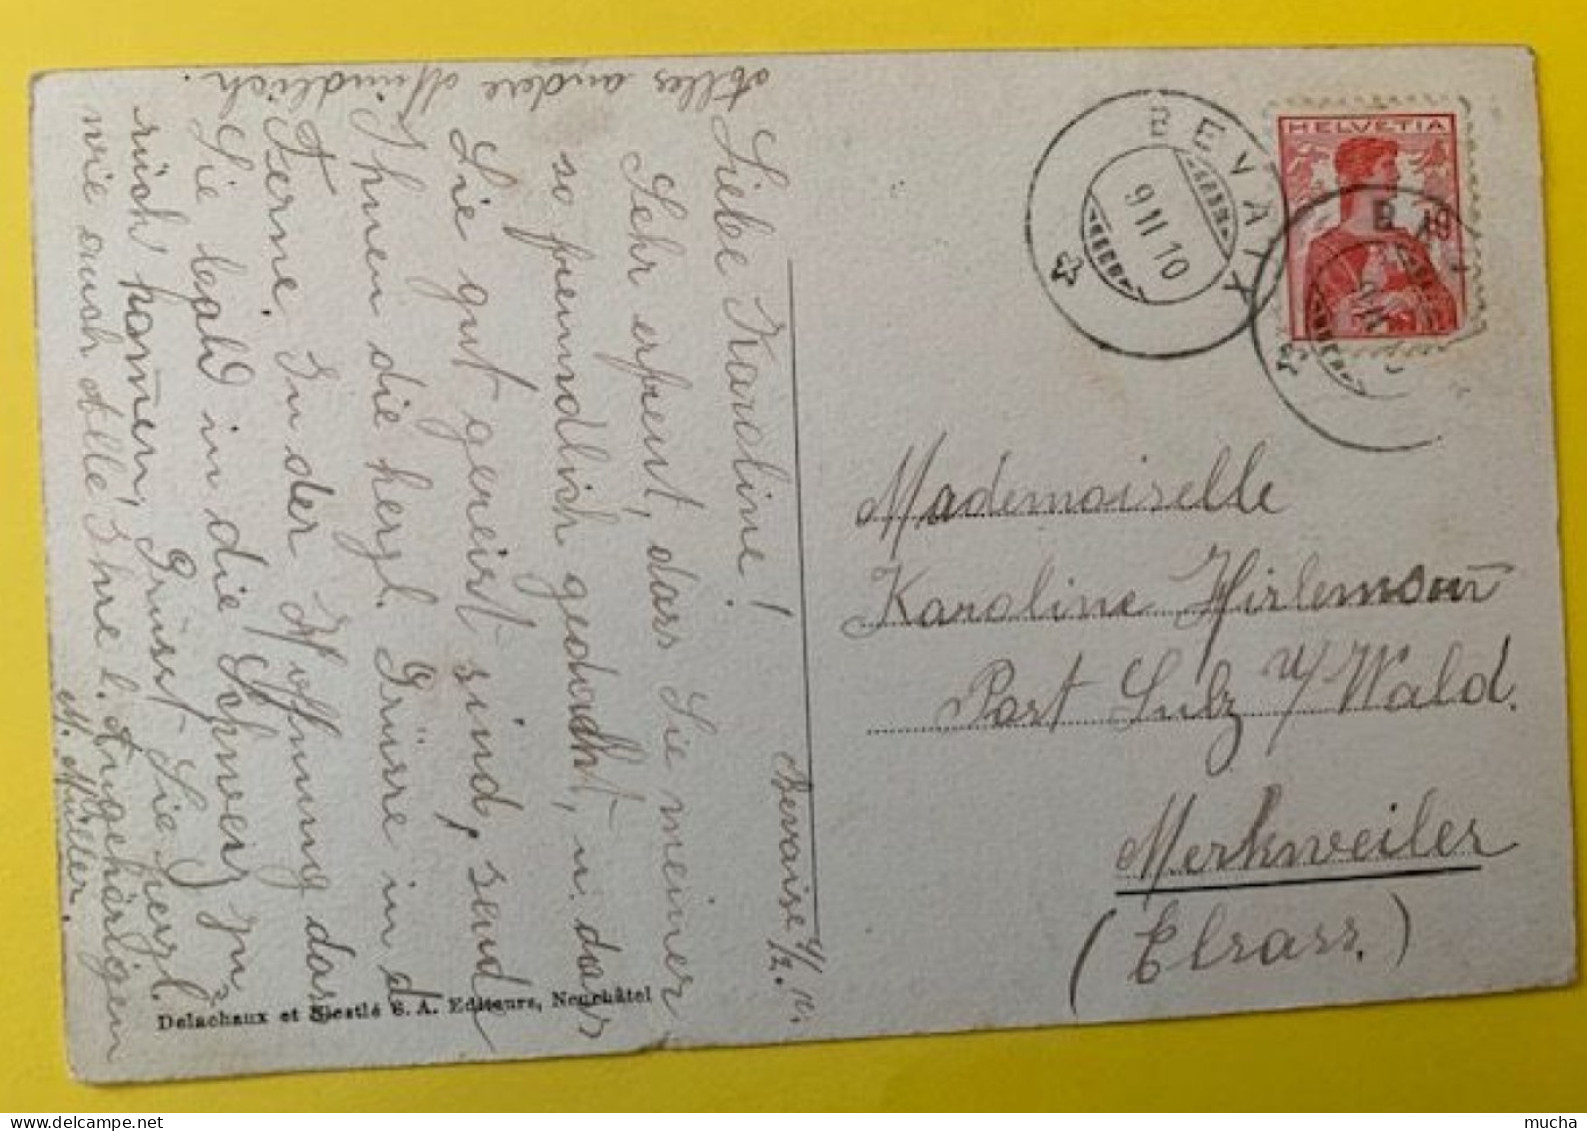 Bevaix 9/2. 10.
Liebe Karoline!
Sehr erfreut, dass Sie meiner
so freundlich gedacht, u. dass
Sie gut gereist sind, send
Ihnen die herzl. Grüsse in d
Ferne. In der Hoffnung dass
Sie bald in die Schweiz zu-
rück kommen, Grüsst Sie herzl.
wie auch Alle Ihre l. Angehörigen
M. Müller.
Alles andere Mündlich.
Delachaux et Niestlé S. A. Editeurs, Neuchâtel
BEVAIX
9 II 10
HELVETIA
10
BEVAIX
Mademoiselle
Karoline
Post Sulz u/Wald.
Merkweiler
(Elsass.)
mucha